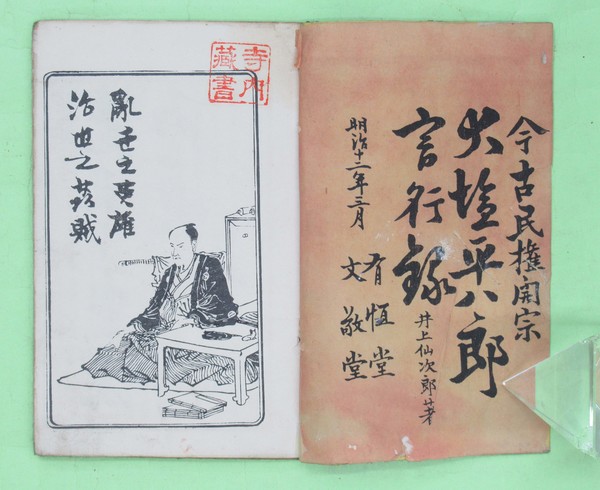 今古民権開宗
大塩平八郎
言行録
井上仙次郎著
明治十二年三月
有恒堂
文敬堂
寺内
藏書
亂世之英雄
治世之賊